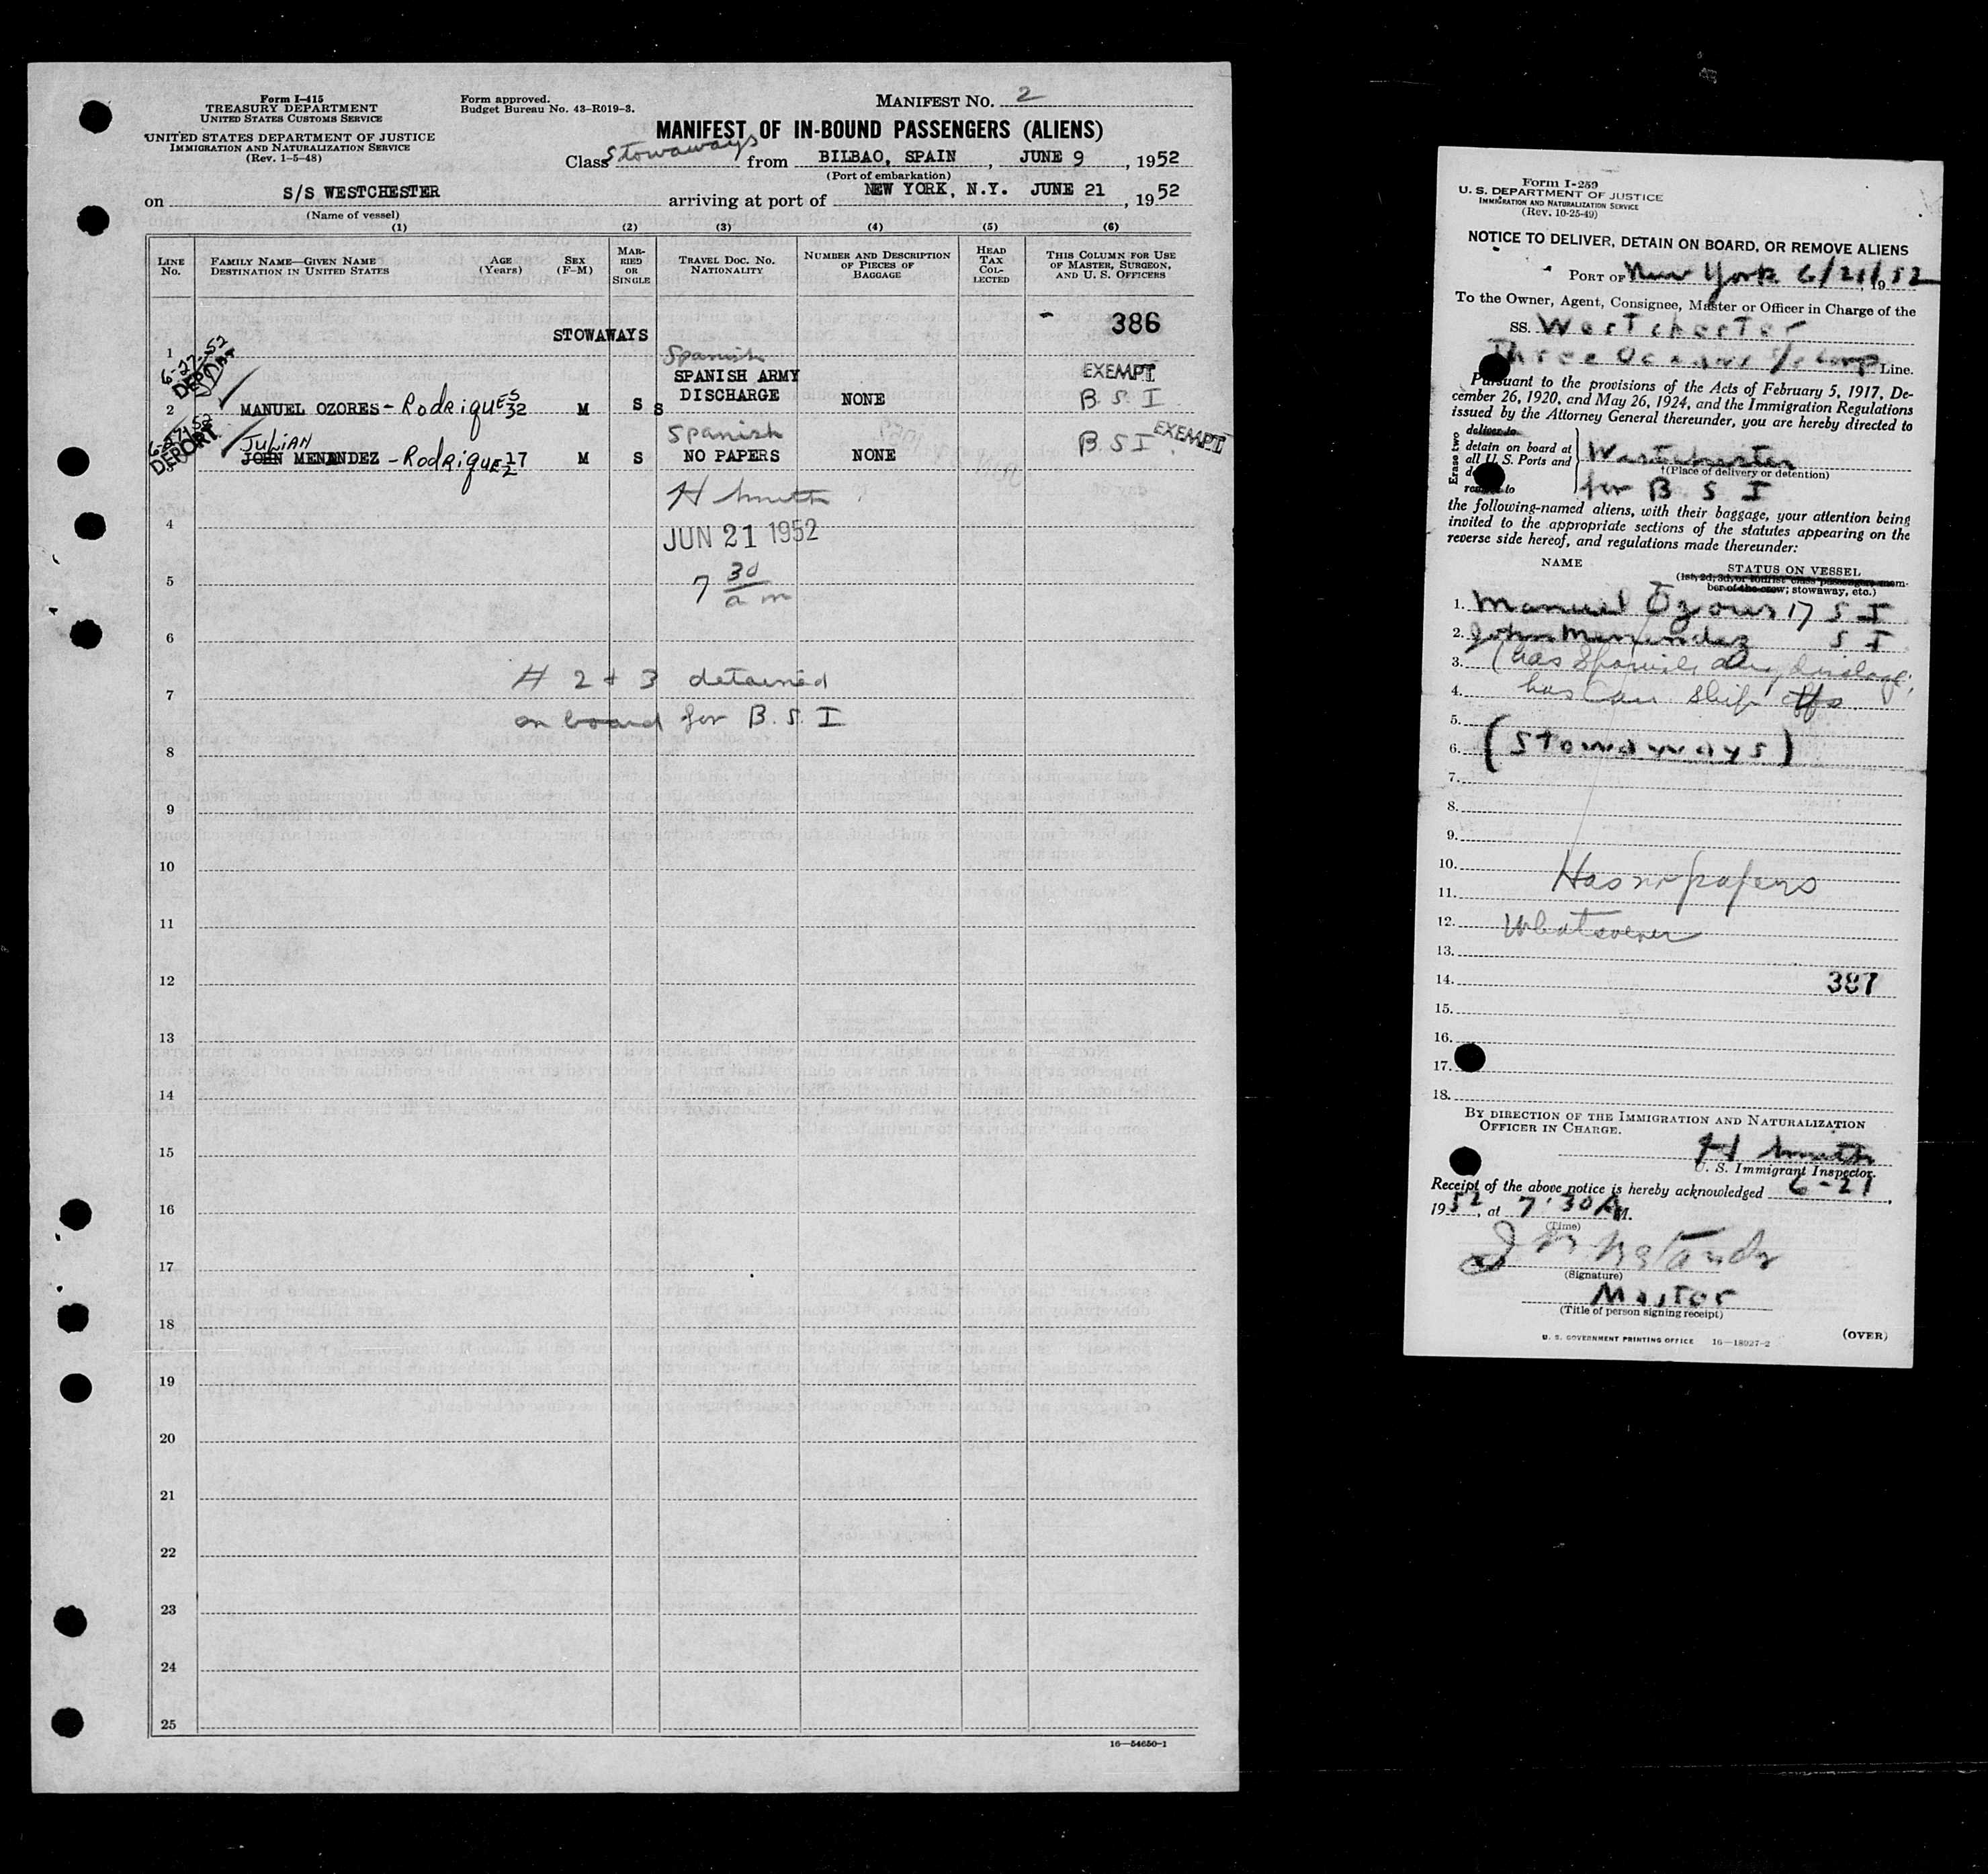 Form I-415
TREASURY DEPARTMENT
UNITED STATES CUSTOMS SERVICE
UNITED STATES DEPARTMENT OF JUSTICE
IMMIGRATION AND NATURALIZATION SERVICE
(Rev. 1-5-48)
Form approved.
Budget Bureau No. 43-R019-3.
MANIFEST NO. 2
MANIFEST OF IN-BOUND PASSENGERS (ALIENS)
Class Stowaways from BILBAO, SPAIN, JUNE 9, 1952
(Port of embarkation)
on S/S WESTCHESTER arriving at port of NEW YORK, N.Y. JUNE 21, 1952
(Name of vessel)
(1) (2) (3) (4) (5) (6)
LINE No.
FAMILY NAME—GIVEN NAME
DESTINATION IN UNITED STATES
AGE (Years)
SEX (F-M)
MARRIED OR SINGLE
TRAVEL DOC. NO. NATIONALITY
NUMBER AND DESCRIPTION OF PIECES OF BAGGAGE
HEAD TAX COLLECTED
THIS COLUMN FOR USE OF MASTER, SURGEON, AND U. S. OFFICERS
386
STOWAWAYS
1 Spanish
6-27-52 DEPORT
SPANISH ARMY EXEMPT
2 MANUEL OZORES - RODRIQUES 32 M S S DISCHARGE NONE B.S.I
6-27-52 DEPORT
JULIAN Spanish EXEMPT
JOHN MENENDEZ - RODRIQUEZ 17 M S NO PAPERS NONE B S I
H Smith
4 JUN 21 1952
5 7 30 a m
6
7 # 2 + 3 detained
on board for B.S.I
8
9
10
11
12
13
14
15
16
17
18
19
20
21
22
23
24
25
16—54650-1
Form I-259
U. S. DEPARTMENT OF JUSTICE
IMMIGRATION AND NATURALIZATION SERVICE
(Rev. 10-25-49)
NOTICE TO DELIVER, DETAIN ON BOARD, OR REMOVE ALIENS
PORT OF New York 6/21/1952
To the Owner, Agent, Consignee, Master or Officer in Charge of the
SS. Westchester
Three Oceans S/S Corp Line.
Pursuant to the provisions of the Acts of February 5, 1917, De-
cember 26, 1920, and May 26, 1924, and the Immigration Regulations
issued by the Attorney General thereunder, you are hereby directed to
Erase two
deliver to
detain on board at
all U. S. Ports and
Westchester
†(Place of delivery or detention)
for B S I
the following-named aliens, with their baggage, your attention being
invited to the appropriate sections of the statutes appearing on the
reverse side hereof, and regulations made thereunder:
NAME STATUS ON VESSEL
(1st, 2d, 3d, or tourist class passenger, mem-
ber of the crew; stowaway, etc.)
1. Manuel Ozores 17 S I
2. John Menendez S I
3. (has Spanish army
4. has
5.
6. (Stowaways)
7.
8.
9.
10.
11. Has no papers
12. Whatsoever
13.
14. 387
15.
16.
17.
18.
BY DIRECTION OF THE IMMIGRATION AND NATURALIZATION
OFFICER IN CHARGE.
H Smith
U. S. Immigrant Inspector.
Receipt of the above notice is hereby acknowledged 6-21,
1952, at 7:30 A M.
(Time)
(Signature)
Master
(Title of person signing receipt)
U. S. GOVERNMENT PRINTING OFFICE 16-18927-2
(OVER)